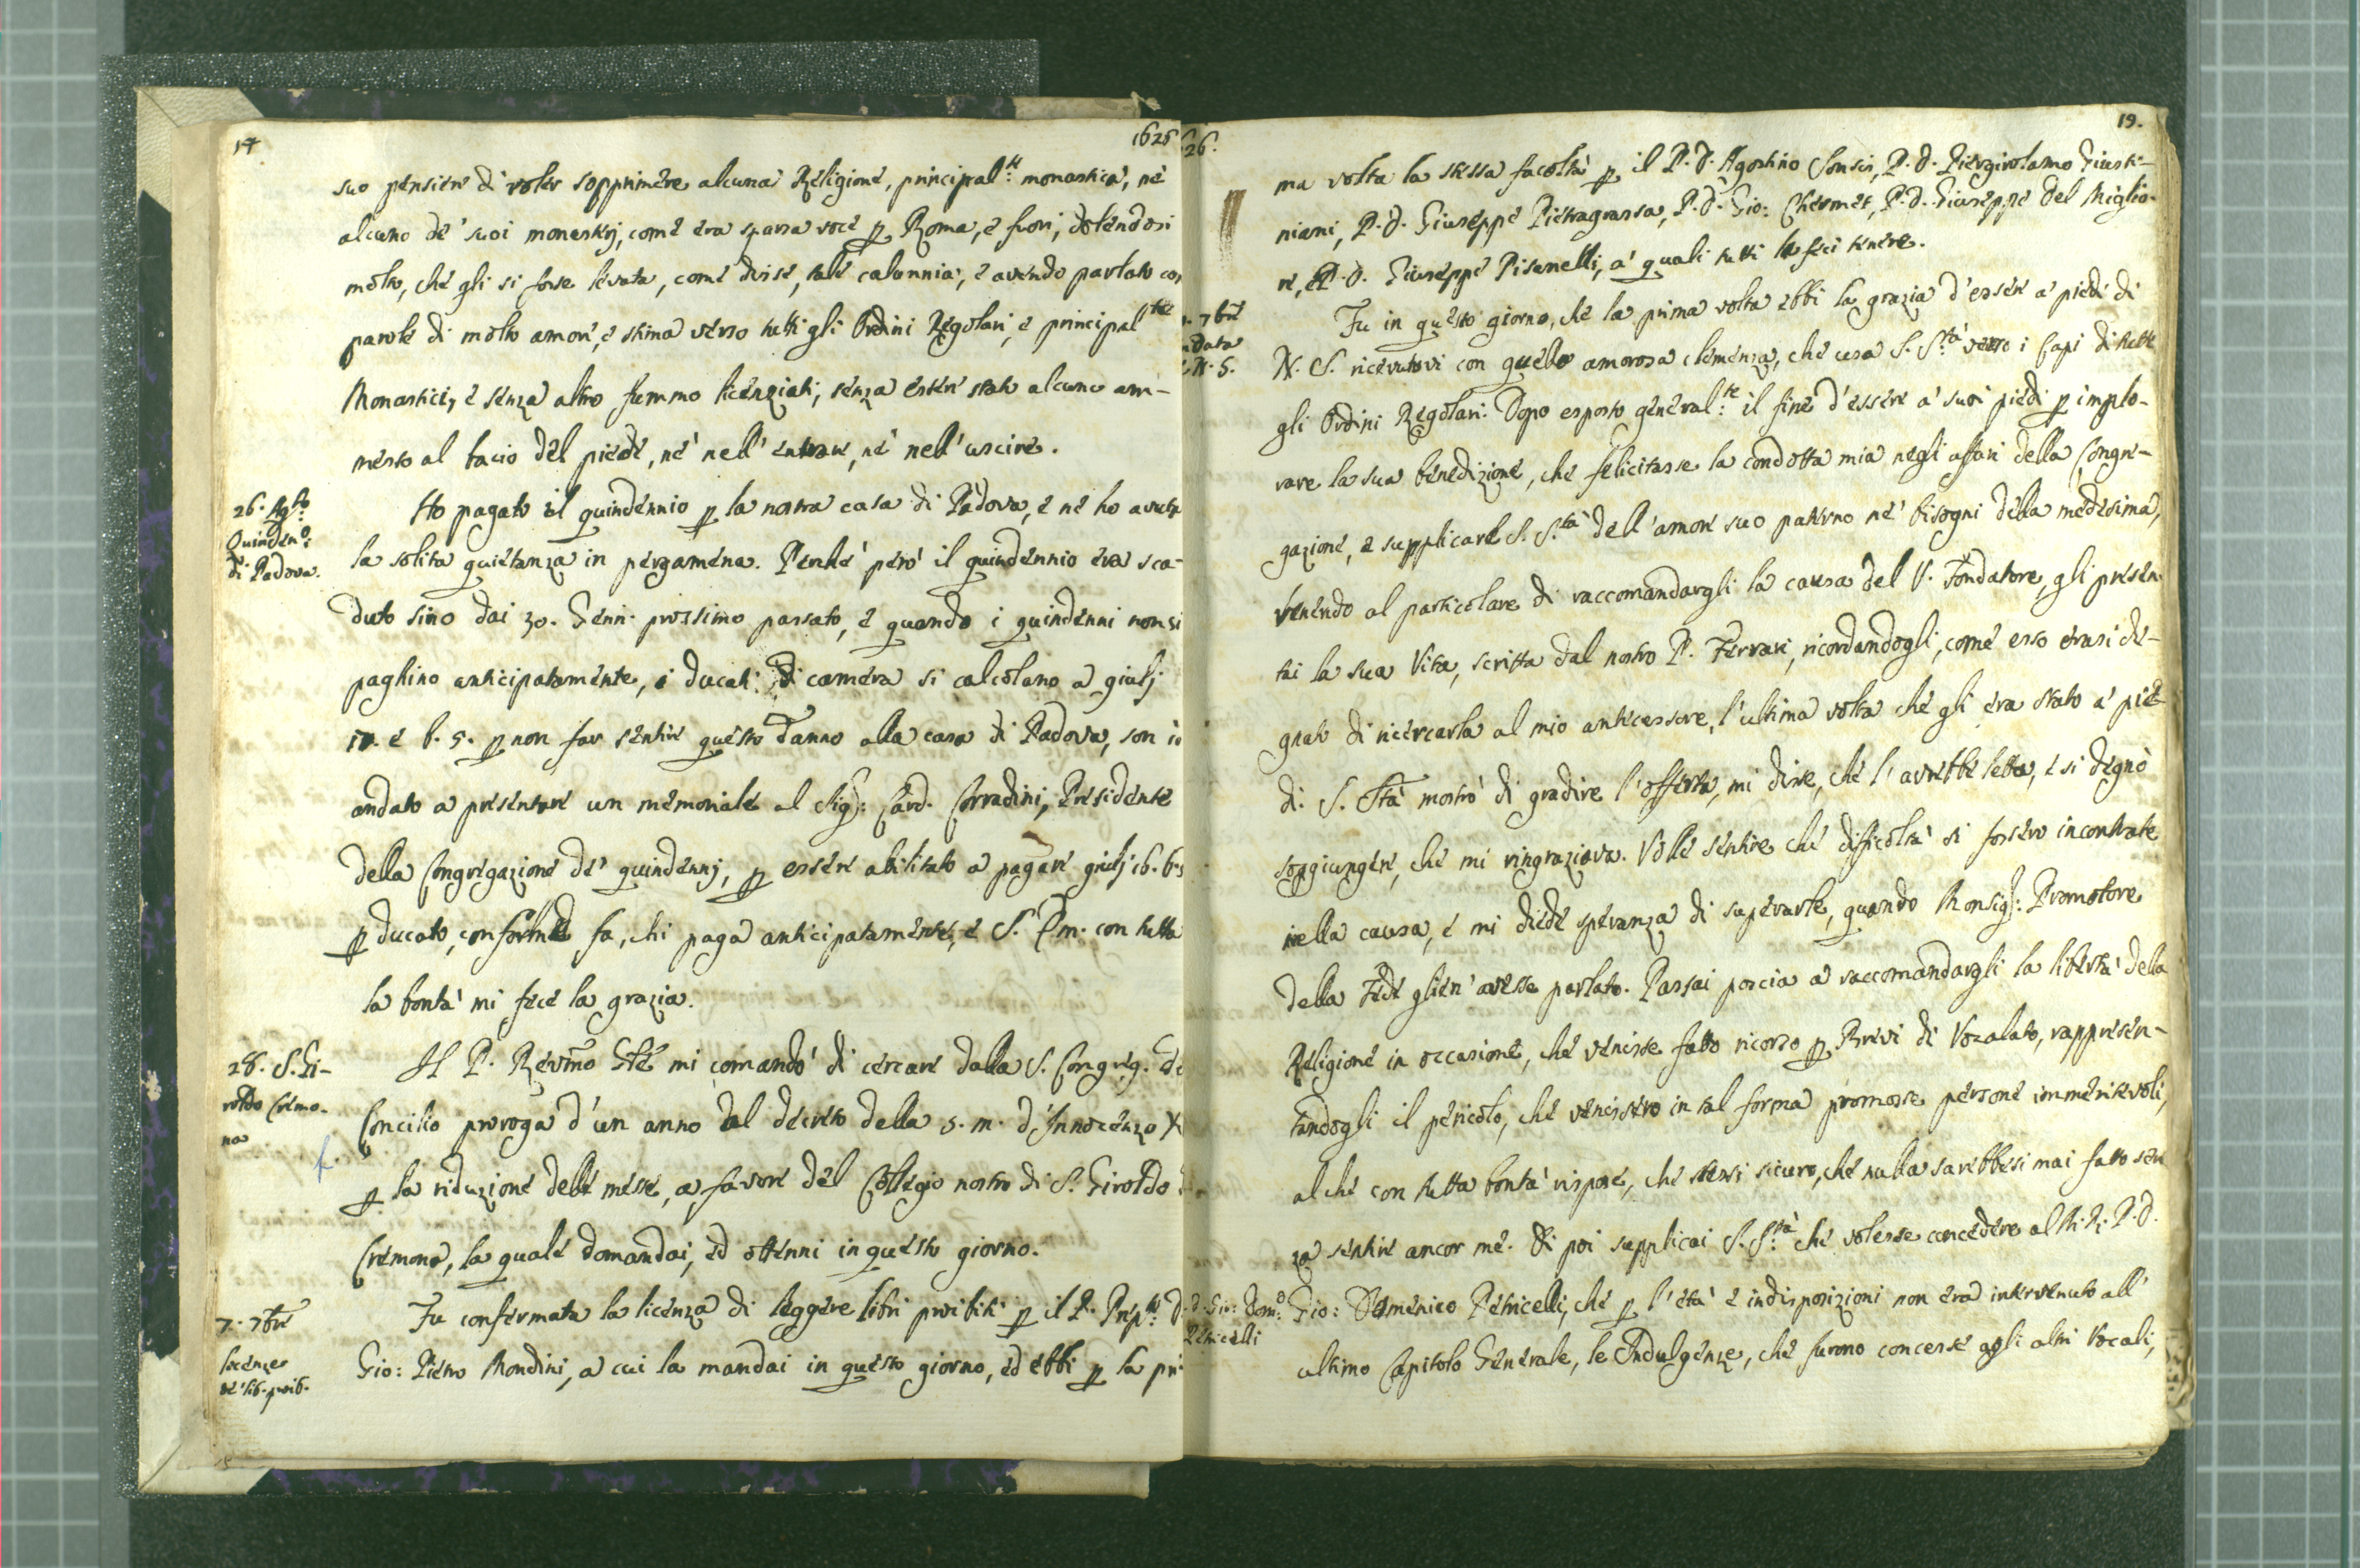 14 1626
suo pensiere di voler sopprimere alcuna Religione, principal.te monastica, nè
alcuno de' suoi monasterj, come era sparsa voce p Roma, e fuori, dolendosi
molto, che gli si fosse levata, come disse, tale calunnia; e avendo parlato con
parole di molto amore, e stima verso tutti gli Ordini Regolari, e principal.te
Monastici, e senza altro fummo licenziati, senza esser stato alcuno am-
messo al bacio del piede, nè nell' entrare, nè nell' uscire.
26. Ag.to
Quinden.o
di Padova.
Ho pagato il quindennio p la nostra casa di Padova, e ne ho avuta
la solita quietanza in pergamena. Perchè però il quindennio era sca-
duto sino dai 30. Genn. prossimo passato, e quando i quindenni non si
paghino anticipatamente, i ducati di camera si calcolano a giulj
17. e b. 5. p non far sentire questo danno alla casa di Padova, son io
andato a presentare un memoriale al Sig.: Card. Corradini, Presidente
della Congregazione de' quindennj, p essere abilitato a pagare giulj 16. b. 5
p ducato, conforme fa, chi paga anticipatamente, e S. Em. con tutta
la bontà mi fece la grazia.
28. S. Gi-
roldo Cremo-
na
Il P. Revmo Gñle mi comandò di cercare dalla S. Congreg. del
Concilio proroga d'un anno al decreto della s. m. d'Innocenzo X
p la riduzione delle messe, a favore del Collegio nostro di S. Giroldo di
Cremona, la quale domandai, ed ottenni in questo giorno.
7. 7bre
Licenze
de' lib. proib.
Fu confermata la licenza di leggere libri proibiti p il P. Prep.to D.
Gio: Pietro Mondini, a cui la mandai in questo giorno, ed ebbi p la pri-
26. 19.
ma volta la stessa facoltà p il P. D. Agostino P. D. Piergirolamo Giusti-
niani, P. D. Giuseppe Pietragrassa, P. D. Gio: Chermet, P. D. Giuseppe Del Miglio-
re, e P. D. Giuseppe Pisanelli, a' quali tutti la feci tenere.
7bre
data
N. S.
Fu in questo giorno, che la prima volta ebbi la grazia d'essere a' piedi di
N. S. ricevutovi con quella amorosa clemenza, che usa S. S.tà verso i Capi di tutti
gli Ordini Regolari. Dopo esposto general.te il fine d'essere a' suoi piedi p implo-
rare la sua benedizione, che felicitasse la condotta mia negli affari della Congre-
gazione, e supplicare S. S.tà dell' amore suo paterno ne' bisogni della medesima,
venendo al particolare di raccomandargli la causa del V. Fondatore, gli presen-
tai la sua Vita, scritta dal nostro P. Ferrari, ricordandogli, come esso erasi de-
gnato di ricercarla al mio antecessore, l'ultima volta che gli era stato a' pie-
di. S. Stà mostrò di gradire l'offerta, mi disse, che l'avrebbe letta, e si degnò
soggiungere, che mi ringraziava. Volle sentire che difficoltà si fossero incontrate
nella causa, e mi diede speranza di superarle, quando Monsig.: Promotore
della Fede glien' avesse parlato. Passai poscia a raccomandargli la libertà della
Religione in occasione, che venisse fatto ricorso p Brevi di Vocalato, rappresen-
tandogli il pericolo, che venissero in tal forma promosse persone immeritevoli,
al che con tutta bontà rispose, che stessi sicuro, che nulla sarebbesi mai fatto sen-
za sentire ancor me. Di poi supplicai S. S.tà che volesse concedere al M. R. P. D.
P. D. Gio: Dom.o
Petricelli
Gio: Domenico Petricelli, che p l'età e indisposizioni non era intervenuto all'
ultimo Capitolo Generale, le Indulgenze, che furono concesse agli altri Vocali,